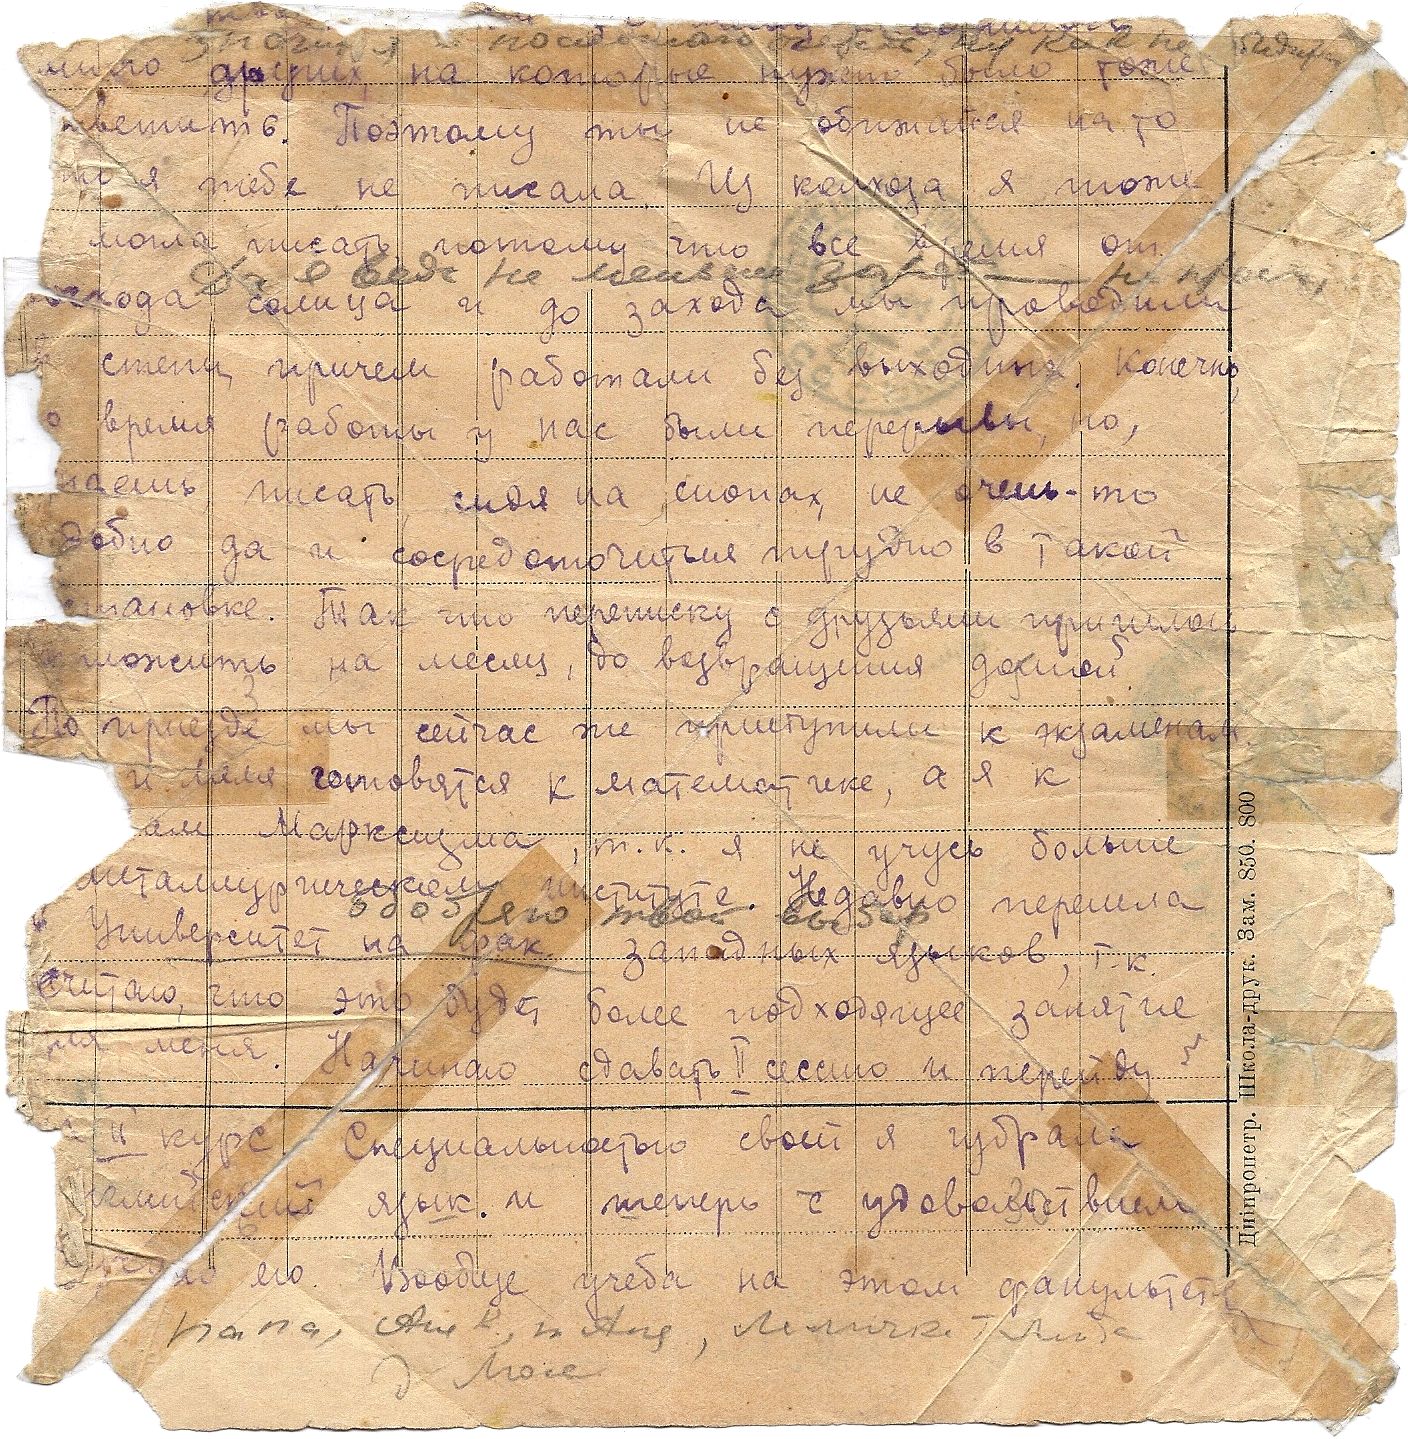 много других, на которые нужно было тоже
ветить. Поэтому ты не обижайся на то
что я тебе не писала. Из колхоза я тоже
могла писать потому что все время от
Да я ведь не меньше
схода солнца и до захода мы проводили
в степи, причем работали без выходных. Конечно,
о время работы у нас были перерывы, но,
наешь писать, сидя на снопах, не очень-то
добно да и сосредоточиться трудно в такой
становке. Так что переписку с друзьями пришлось
тложить на месяц, до возвращения домой.
По приезде мы сейчас же приступили к экзаменам.
и Ляля готовятся к математике, а я к
ам Марксизма, т.к. я не учусь больше
металлургическом институте. Недавно перешла
одобряю твой выбор
Университет на фак. западных языков, т.к.
считаю, что это будет более подходящее занятие
ля меня. Начинаю сдавать II сессию и перейду
а II курс. Специальностью своей я избрала
нглийский язык. и теперь с удовольствием
его. Вообще учеба на этом факультете
папа,
Дніпропетр. Школа-друк. Зам. 850. 800